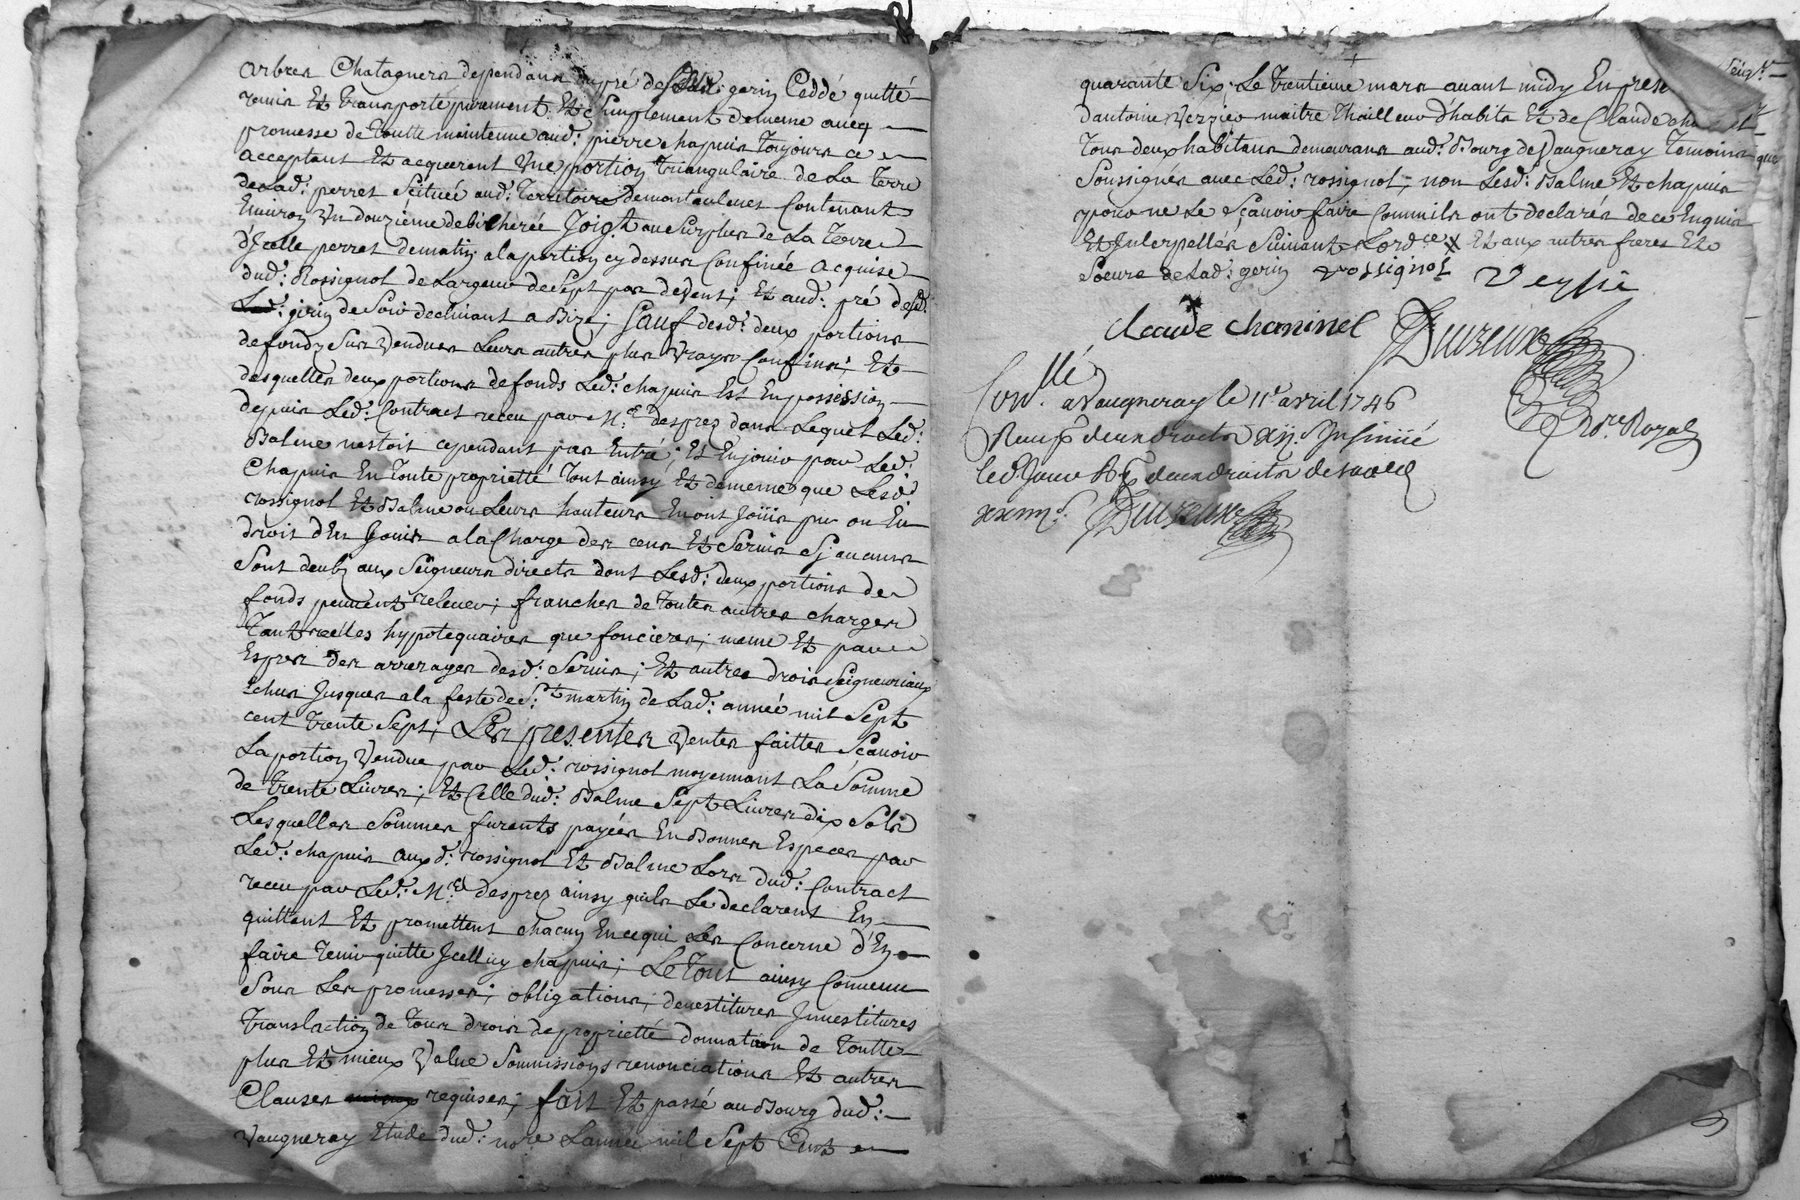 arbres Chatagners dependans du pré de gerin Ceddé quitté
remis Et transporte purement Et Simplement de meme avecq
promesse de toutte maintenue aud: pierre chapuis Toujours ce
acceptant Et acquerent Une portion Triangulaire de La Terre
de Lad: perret Scituée aud: Territoire de Contenant
Environ Un douzième de bicherée Joig.t au Surplus de La Terre
d'Jcelle perret de matin, a la portion cy dessus Confinée acquise
dud: Rossignol de Largeur de Sept pas de Vent; Et aud: pré de
gerin de Soir declinant a Bize; Sauf desd: deux portions
de fondz Sus Vendues Leurs autres plus Vrays Confins; Et
desquelles deux portions de fonds Led: chapuis Est En possession
depuis Led: Contract receu par M.e desprez dans Lequel Led:
Balme nestoit cependant pas Entré; Et En jouir par Led:
Chapuis En toute proprietté Tout ainsy Et de meme que Lesd:
rossignol Et Balme ou Leurs hauteurs En ont Joüis pu ou Eu
droit d'En Jouir a la Charge des cens Et Servis Sj aucuns
Sont deubz aux Seigneurs directs dont Lesd: deux portions de
fonds peuvent relever; franches de toutes autres charges
Tant réelles hypotequaires que foncieres; meme Et par
Exprez des arrerages desd: Servis; Et autres droits Seigneuriaux
Echus Jusques a la feste de S.t martin de Lad: année mil Sept
cent trente Sept; Les presentes Ventes faittes Sçavoir
La portion Vendue par Led: rossignol moyennant La Somme
de trente Livres; Et Celle dud: Balme Sept Livres dix Sols
Lesquelles Sommes furents payées En Bonnes Especes par
Led: chapuis aux d: rossignol Et Balme Lors dud: Contract
receu par Led: M.e desprez ainsy quils Le declarent En
quittent Et promettent chacun En ce qui Les Concerne d'En
faire tenir quitte Jcelluy chapuis; Le Tout ainsy Convenu
Sous Les promesses; obligations; devestitures Jnvestitures
translation de tous droits de proprietté donnation de toutte
plus Et mieux Value Sommissions renonciations Et autres
Clauses requises; fait Et passé au Bourg dud:
Vaugneray Etude dud: no.re Lannée mil Sept Cent
quarante Six Le trentieme mars avant midy En
d'antoine Verzieu maitre Thailleur d'habits Et de Claude
Tous deux habitans demeurans aud: Bourg de Vaugneray Temoins
Soussignés avec Led: rossignol; non Lesd: Balme Et chapuis
pour ne Le Sçavoir faire Commils ont declarés de ce Enquis
Et Jnterpellés Suivant Lord.ce X Et aux autres freres Et
Soeurs de Lad: gerin rossignol
Claude chaninel
Con.llé
a Vaugneray le 11e avril 1746
No.re Royal